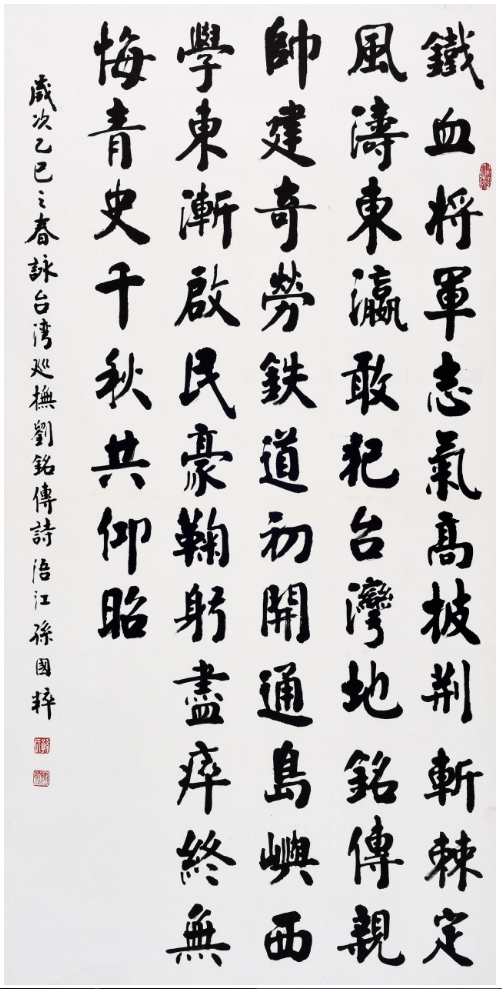 鐵血将軍志氣高披荆斬棘定
風濤東瀛敢犯台灣地銘傳親
帥建奇勞鉄道初開通島嶼西
學東漸啟民豪鞠躬盡瘁終無
悔青史千秋共仰昭
歲次乙巳之春詠台湾巡撫劉銘傳詩浯江孫國粹